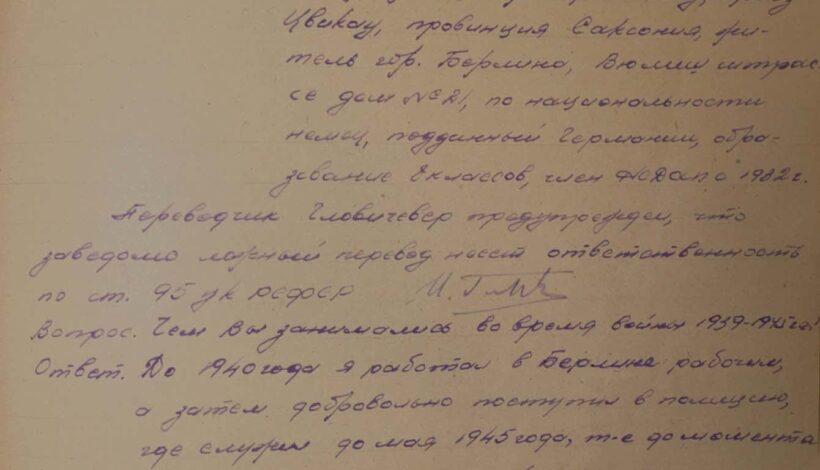 Цвикау, провинция Саксония, жи-
тель гор. Берлина, Вюлиш штрас
се дом № 21, по национальности
немец, подданный Германии, обра-
зование 8 классов, член НСДАП с 1932 г.
Переводчик Гловичевер предупрежден, что
заведомо ложный перевод несет ответственность
по ст. 95 УК РСФСР
Вопрос. Чем Вы занимались во время войны 1939-1945 гг.?
Ответ. До 1940 года я работал в Берлине рабочим,
а затем добровольно поступил в полицию,
где служил до мая 1945 года, т-е до момента